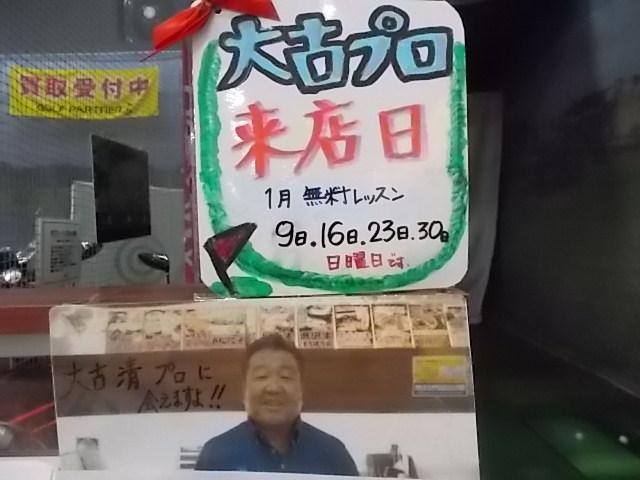 大古プロ
来店日
1月 無料レッスン
9日.16日.23日.30日
日曜日です.
買取受付中
GOLF PARTNER
大古清プロに
会えますよ!!